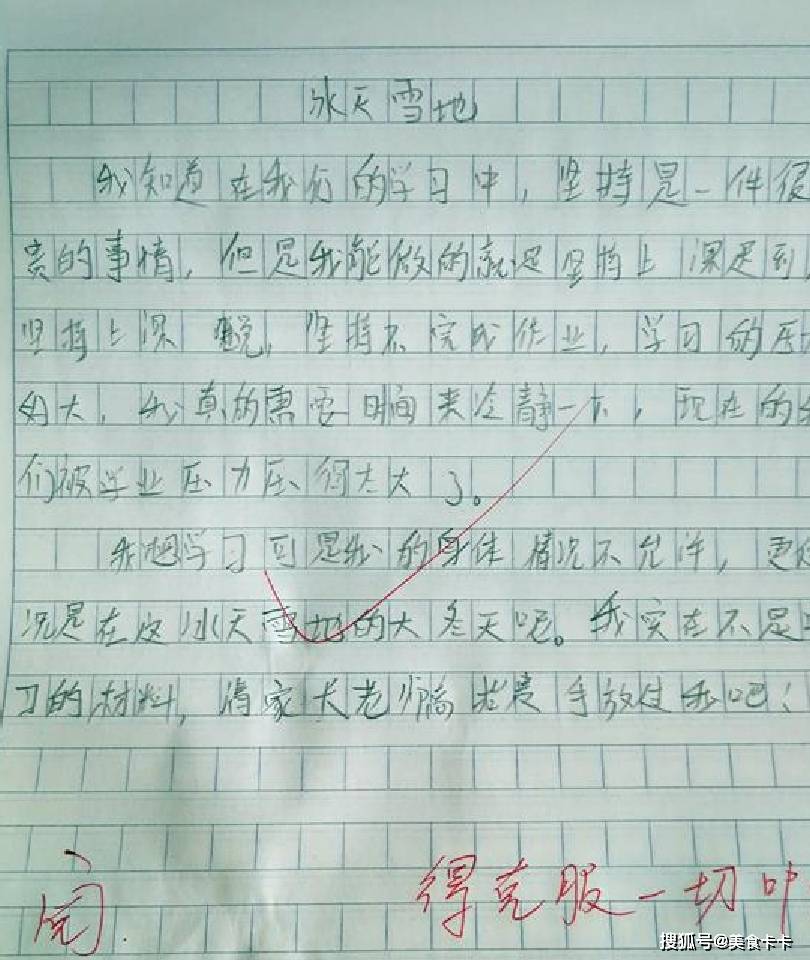 冰天雪地
我知道在我们的学习中，坚持是一件很
贵的事情，但是我能做的就是坚持上课迟到
坚持上课说，坚持不完成作业，学习的压
如大，我真的需要时间来冷静一下，现在的
们被学业压力压得太大了。
我想学习可是我的身体情况不允许，更
况是在这冰天雪地的大冬天呢。我实在不是
习的材料，请家长老师高抬贵手放过我吧！
完.
得克服一切
搜狐号@美食卡卡